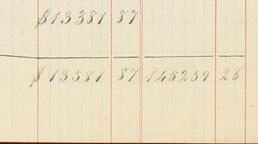 $13381 87
$13381 87 145239 26